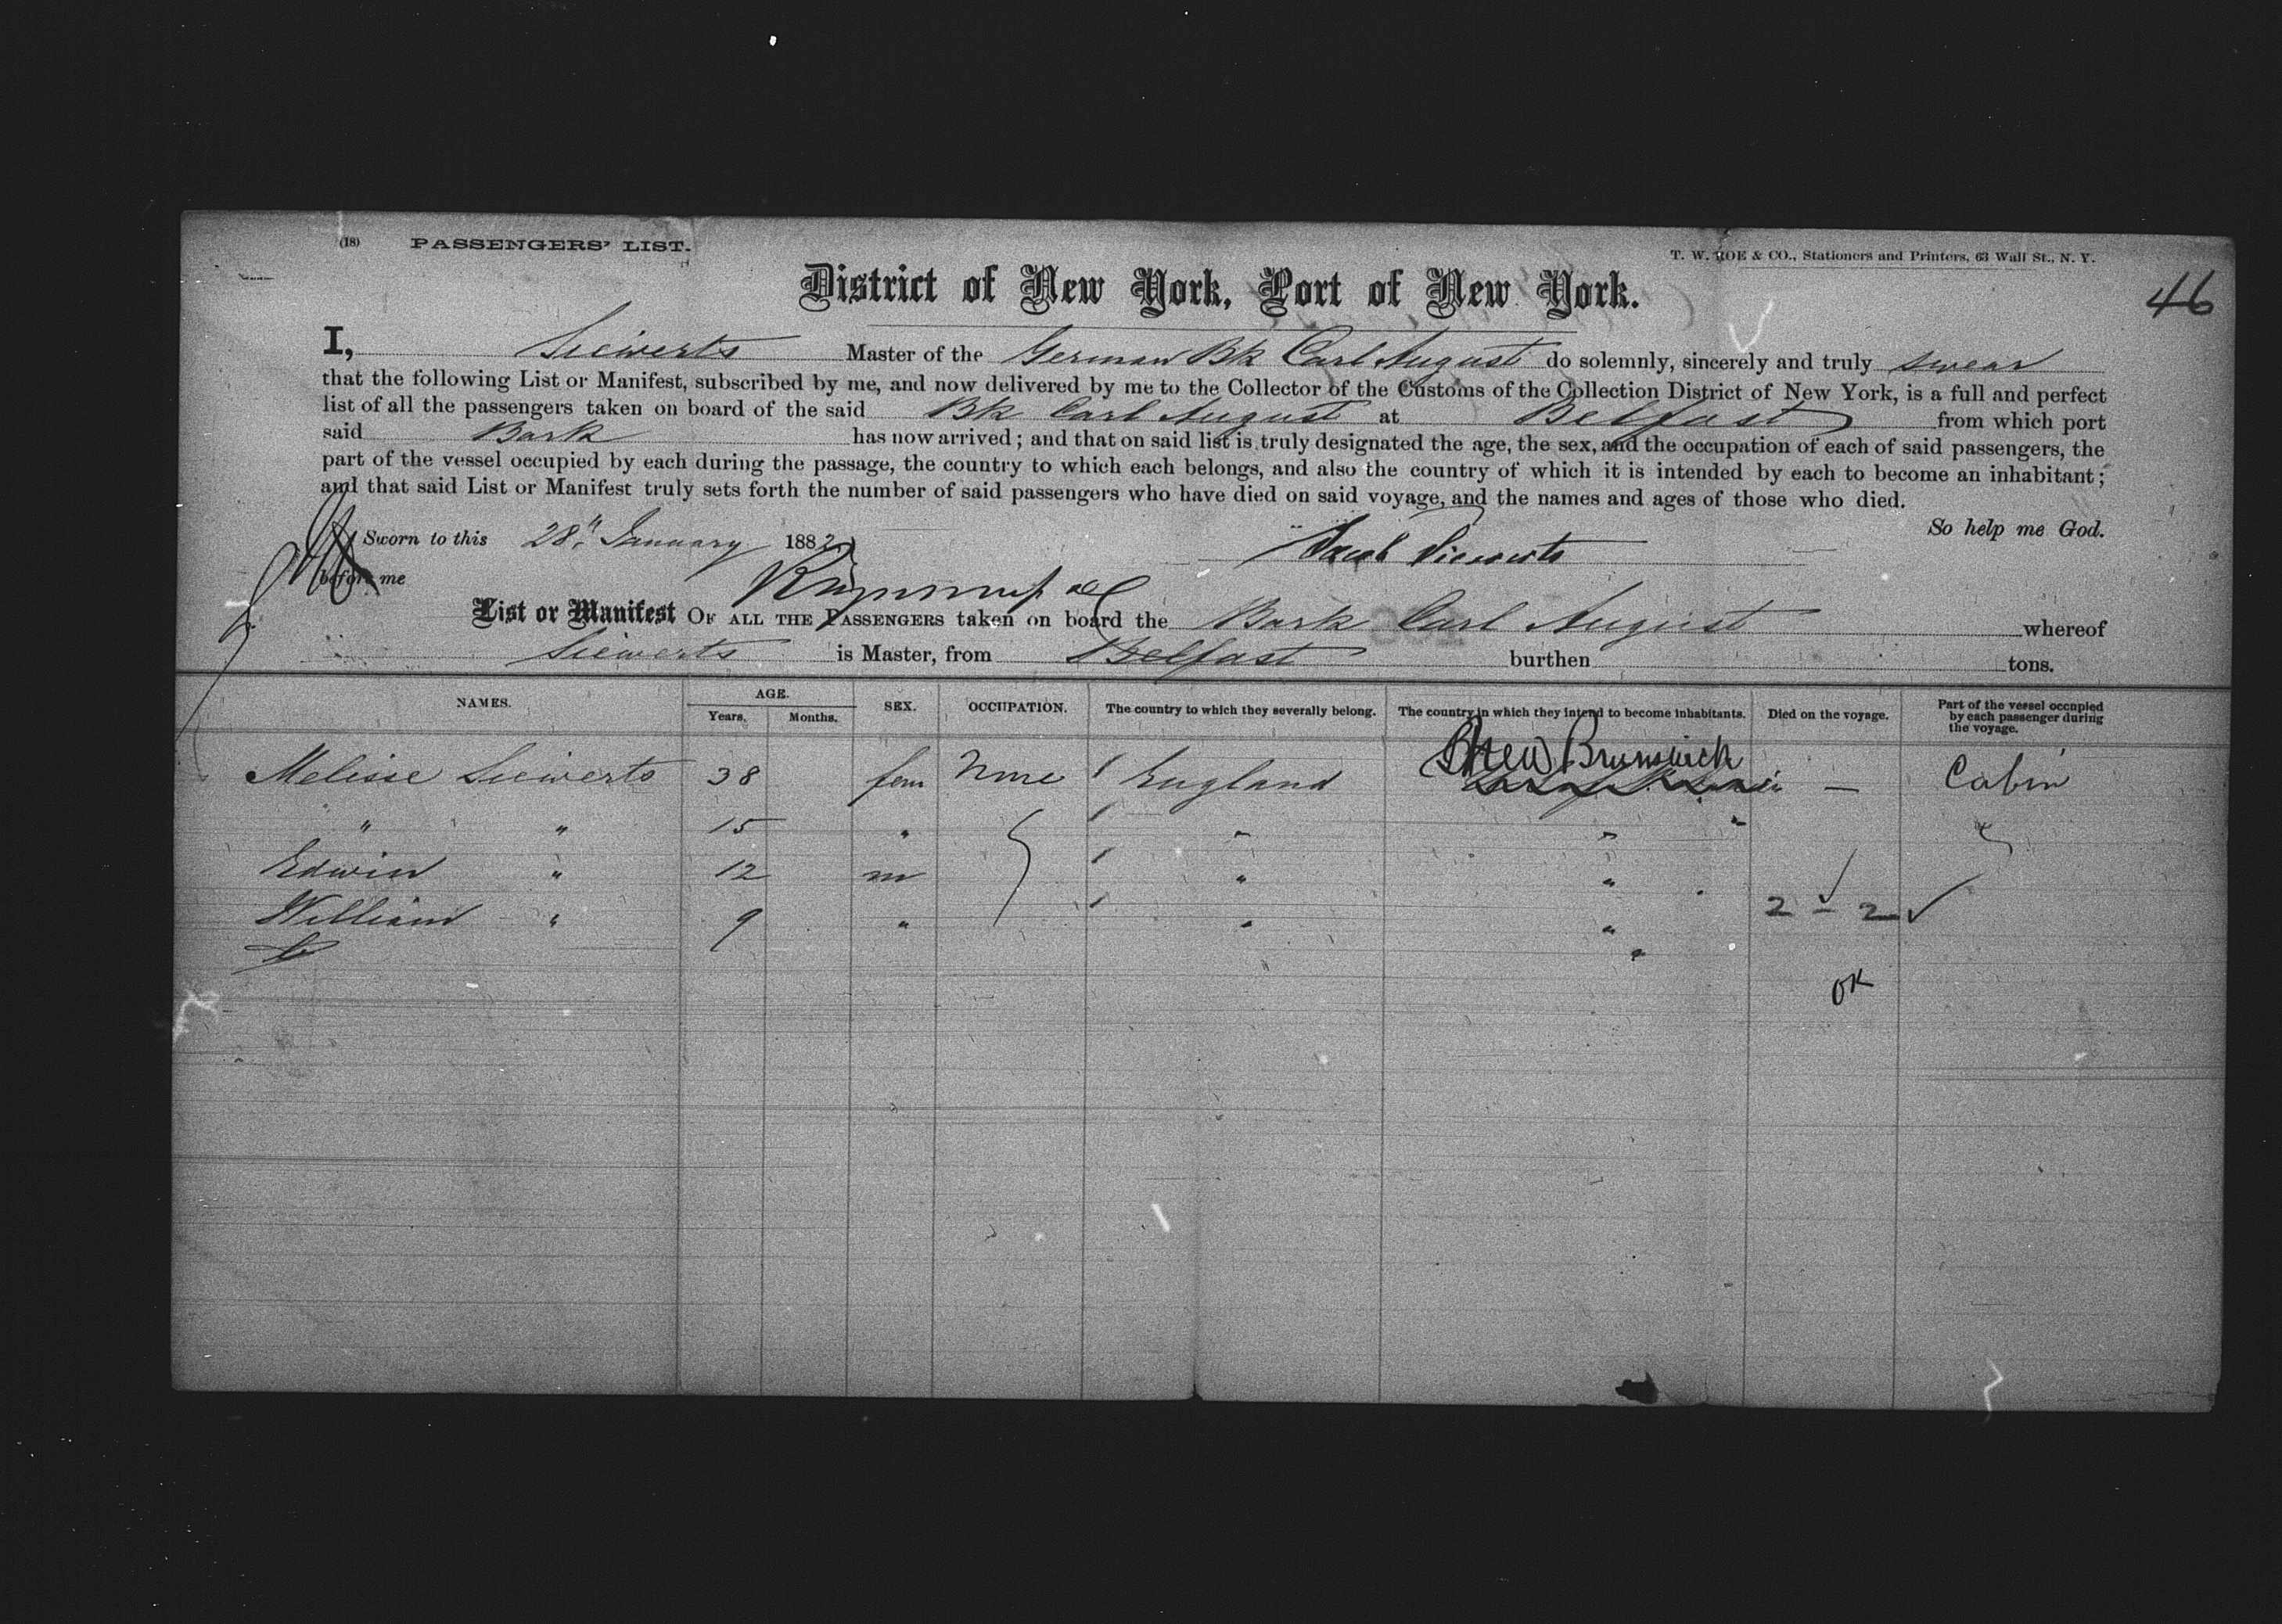 (18) PASSENGERS' LIST.
T. W. ROE & CO., Stationers and Printers, 63 Wall St., N. Y.
46
District of New York, Port of New York.
I, Siewerts Master of the German Bk Carl August do solemnly, sincerely and truly swear
that the following List or Manifest, subscribed by me, and now delivered by me to the Collector of the Customs of the Collection District of New York, is a full and perfect
list of all the passengers taken on board of the said Bk Carl August at Belfast from which port
said Bark has now arrived; and that on said list is truly designated the age, the sex, and the occupation of each of said passengers, the
part of the vessel occupied by each during the passage, the country to which each belongs, and also the country of which it is intended by each to become an inhabitant;
and that said List or Manifest truly sets forth the number of said passengers who have died on said voyage, and the names and ages of those who died.
So help me God.
Sworn to this 28" January 1882 Jacob Siewerts
before me
List or Manifest OF ALL THE PASSENGERS taken on board the Bark Carl August whereof
Siewerts is Master, from Belfast burthen tons.
NAMES. AGE. Years. Months. SEX. OCCUPATION. The country to which they severally belong. The country in which they intend to become inhabitants. Died on the voyage. Part of the vessel occupied by each passenger during the voyage.
New Brunswick
Melisse Siewerts 38 fem None England — Cabin
" " 15 " " " "
Edwin " 12 m " "
William " 9 " " "
2 - 2
OK